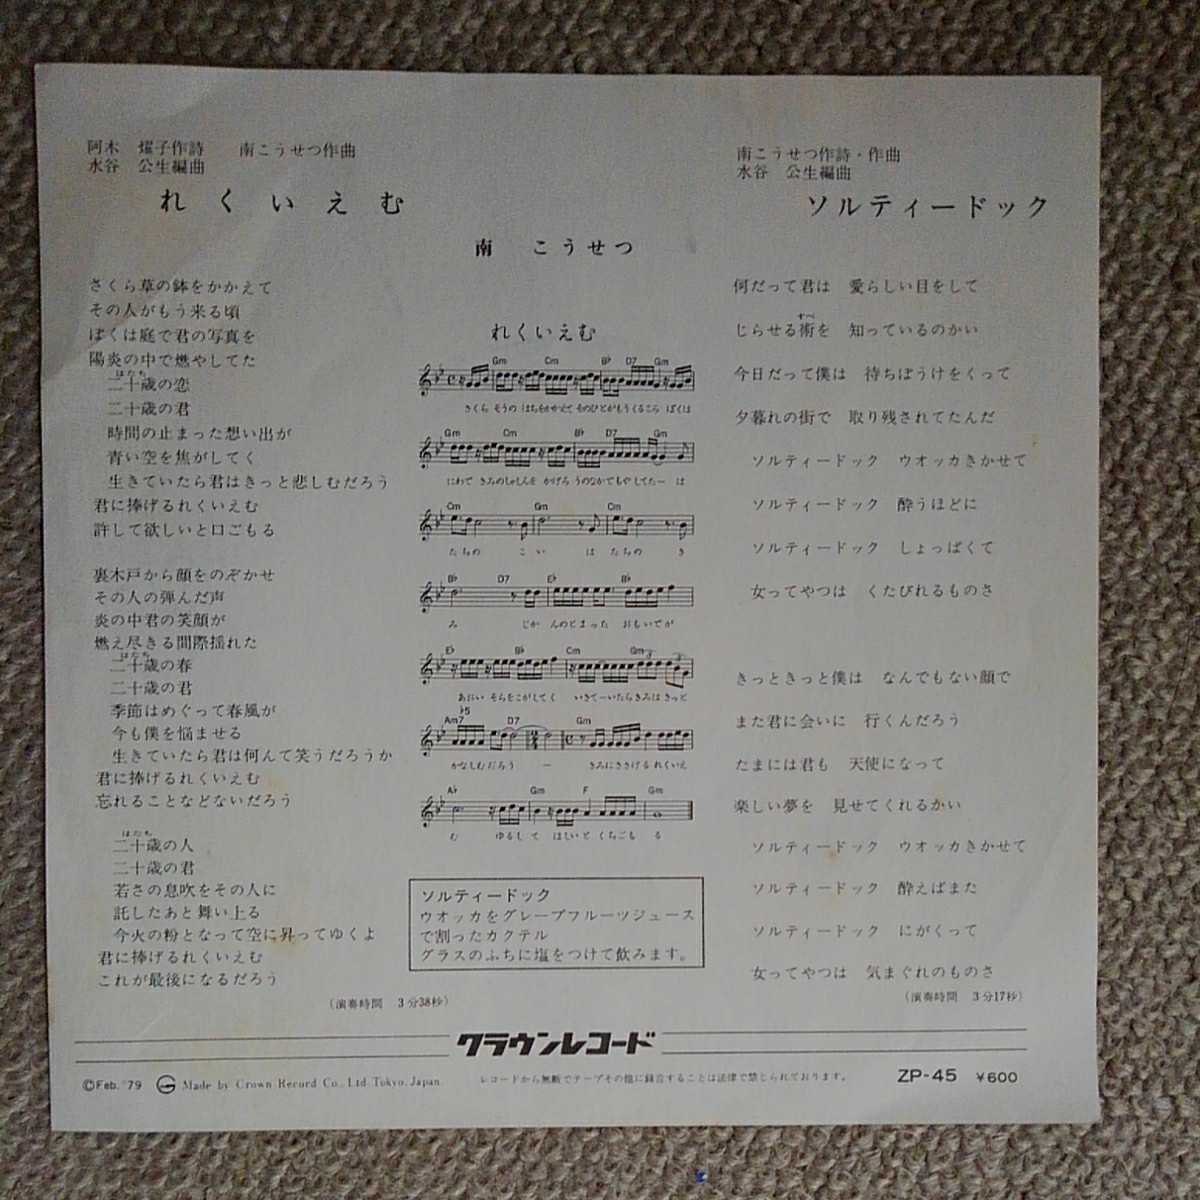 阿木 燿子作詩 南こうせつ作曲
水谷 公生編曲
れくいえむ
南 こうせつ
さくら草の鉢をかかえて
その人がもう来る頃
ぼくは庭で君の写真を
陽炎の中で燃やしてた
はたち
二十歳の恋
二十歳の君
時間の止まった想い出が
青い空を焦がしてく
生きていたら君はきっと悲しむだろう
君に捧げるれくいえむ
許して欲しいと口ごもる
裏木戸から顔をのぞかせ
その人の弾んだ声
炎の中君の笑顔が
燃え尽きる間際揺れた
はたち
二十歳の春
二十歳の君
季節はめぐって春風が
今も僕を悩ませる
生きていたら君は何んて笑うだろうか
君に捧げるれくいえむ
忘れることなどないだろう
はたち
二十歳の人
二十歳の君
若さの息吹をその人に
託したあと舞い上る
今火の粉となって空に昇ってゆくよ
君に捧げるれくいえむ
これが最後になるだろう
(演奏時間 3分38秒)
れくいえむ
Gm Cm B♭ D7 Gm
さくら そうの はちをかかえて そのひとがもうくるころ ぼくは
Gm Cm B♭ D7 Gm
にわで きみのしゃしんを かげろうのなかでもやしてたー は
Cm Gm Cm
たちの こい はたちの き
B♭ D7 E♭ B♭
み じかんのとまった おもいでが
E♭ B♭ Cm Gm
あおい そらをこがしてく いきてーいたらきみはきっと
Am7 ♭5 D7 Gm
かなしむだろう ー きみにささげるれくいえ
A♭ Gm F Gm
む ゆるして ほしいと くちごもる
ソルティードック
ウオッカをグレープフルーツジュース
で割ったカクテル
グラスのふちに塩をつけて飲みます。
南こうせつ作詩・作曲
水谷 公生編曲
ソルティードック
何だって君は 愛らしい目をして
すべ
じらせる術を 知っているのかい
今日だって僕は 待ちぼうけをくって
夕暮れの街で 取り残されてたんだ
ソルティードック ウオッカきかせて
ソルティードック 酔うほどに
ソルティードック しょっぱくて
女ってやつは くたびれるものさ
きっときっと僕は なんでもない顔で
また君に会いに 行くんだろう
たまには君も 天使になって
楽しい夢を 見せてくれるかい
ソルティードック ウオッカきかせて
ソルティードック 酔えばまた
ソルティードック にがくって
女ってやつは 気まぐれのものさ
(演奏時間 3分17秒)
クラウンレコード
©Feb. '79 Made by Crown Record Co., Ltd. Tokyo, Japan. レコードから無断でテープその他に録音することは法律で禁じられております。 ZP-45 ¥600